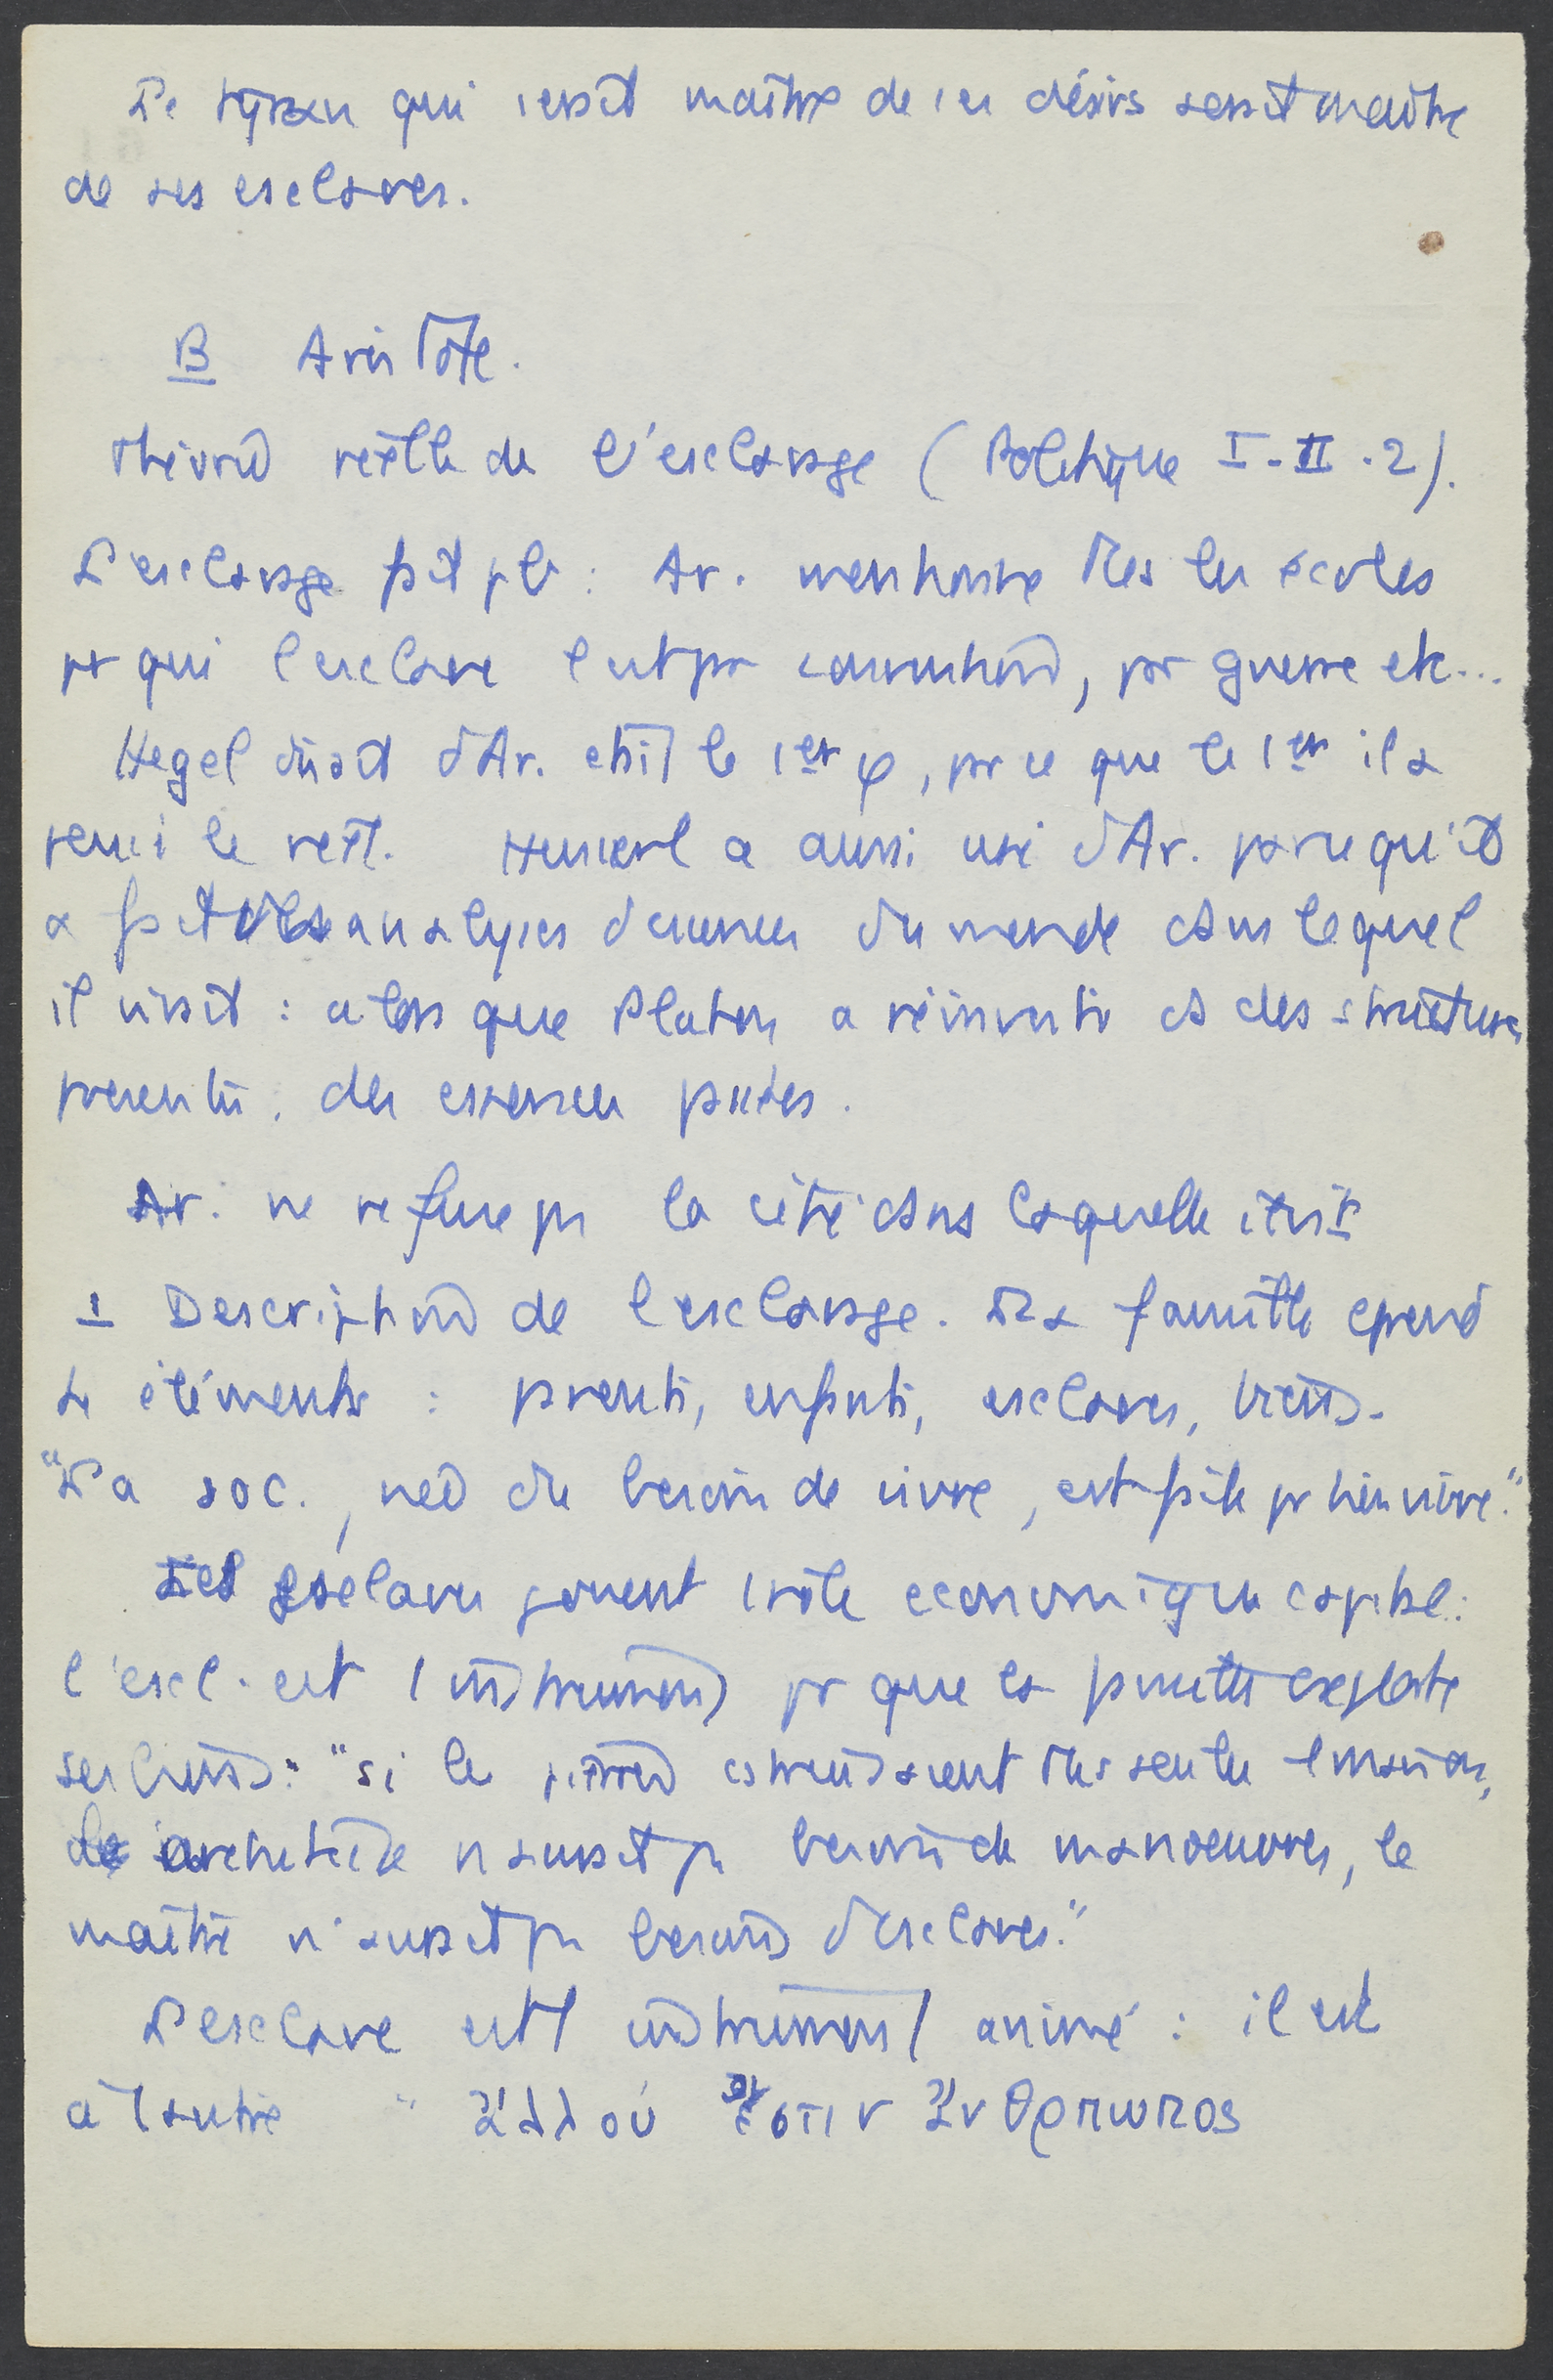 Le tyran qui serait maître de ses désirs serait maître
de ses esclaves.
B Aristote.
Théorie réelle de l'esclavage (Politique I-II.2).
L'esclavage fait pb : Ar. mentionne Ttes les écoles
pr qui l'esclave l'est par convention, par guerre etc...
Hegel disait d'Ar. était le 1er φ, parce que le 1er il a
pensé le réel. Husserl a aussi usé d'Ar. parce qu'il
a fait des analyses d'essences du monde dans lequel
il vivait : alors que Platon a réinventé ds des structures
présentes, des essences passées.
Ar. ne refuse pas la cité dans laquelle il vit
1 Description de l'esclavage. La famille cprend
4 éléments : parents, enfants, esclaves, biens.
"La soc., née du besoin de vivre, est faite pr bien vivre."
Les esclaves jouent 1 rôle économique capital :
l'escl. est 1 instrument pr que la famille exploite
ses biens : "si les navettes tissaient Ttes seules
architecte n'aurait pas besoin de manoeuvres, le
maître n'aurait pas besoin d'esclaves."
L'esclave est 1 instrument animé : il est
à 1 autre " ἄλλου ἐστιν ἄνθρωπος